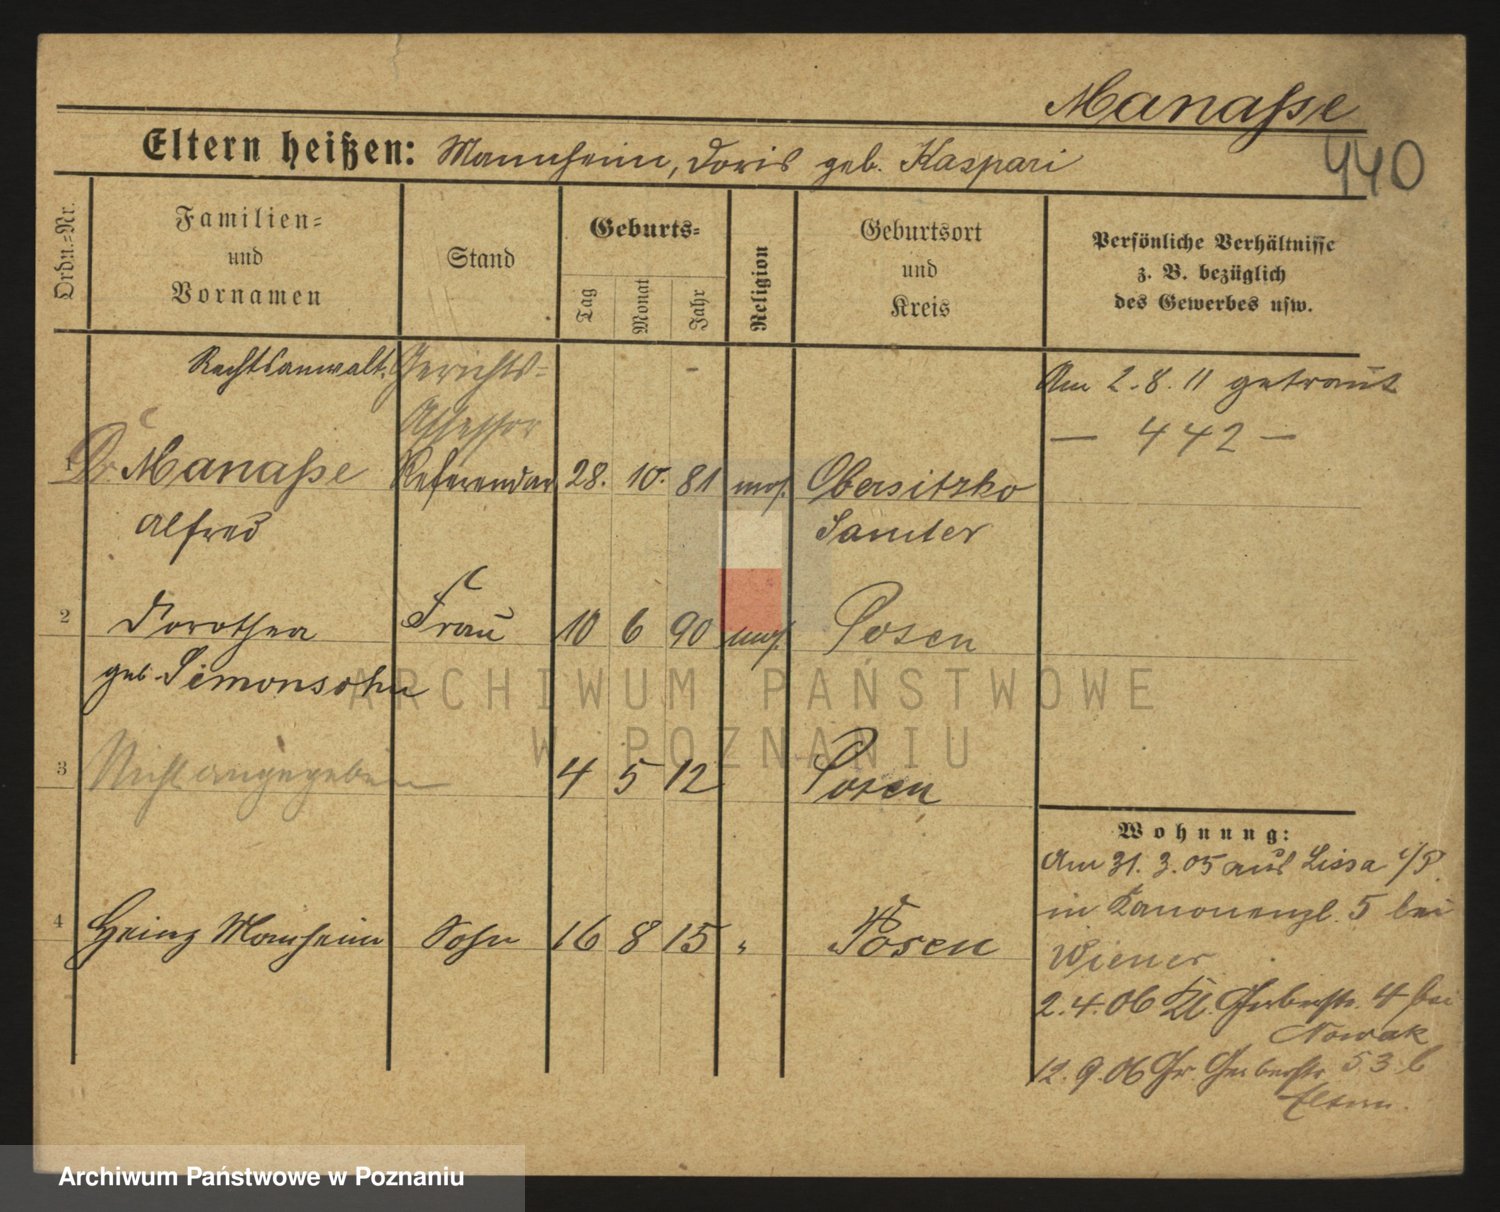 Manaſse
440
Eltern heißen: Mannheim, Doris geb. Kaspari
Ordn.=Nr.
Familien=
und
Vornamen
Stand
Geburts=
Tag
Monat
Jahr
Religion
Geburtsort
und
Kreis
Persönliche Verhältnisse
z. B. bezüglich
des Gewerbes usw.
Rechtsanwalt. Gerichts=
Assessor
Am 2.8.11 getraut
— 442 —
1 Dr. Manaſse Referendar 28. 10. 81 mos. Obersitzko
Alfred Samter
2 Dorothea Frau 10 6 90 mos. Posen
geb. Simonsohn
3 Nicht angegeben 4 5 12 Posen
4 Heinz Manheim Sohn 16 8 15 " Posen
Wohnung:
Am 31.3.05 aus Lissa i/P.
in Kanonenpl. 5 bei
Wiener
2.4.06 Kl. Gerberstr. 4 bei
Nowak
12.9.06 Gr. Gerberstr. 53 b
Eltern.
ARCHIWUM PAŃSTWOWE
W POZNANIU
Archiwum Państwowe w Poznaniu